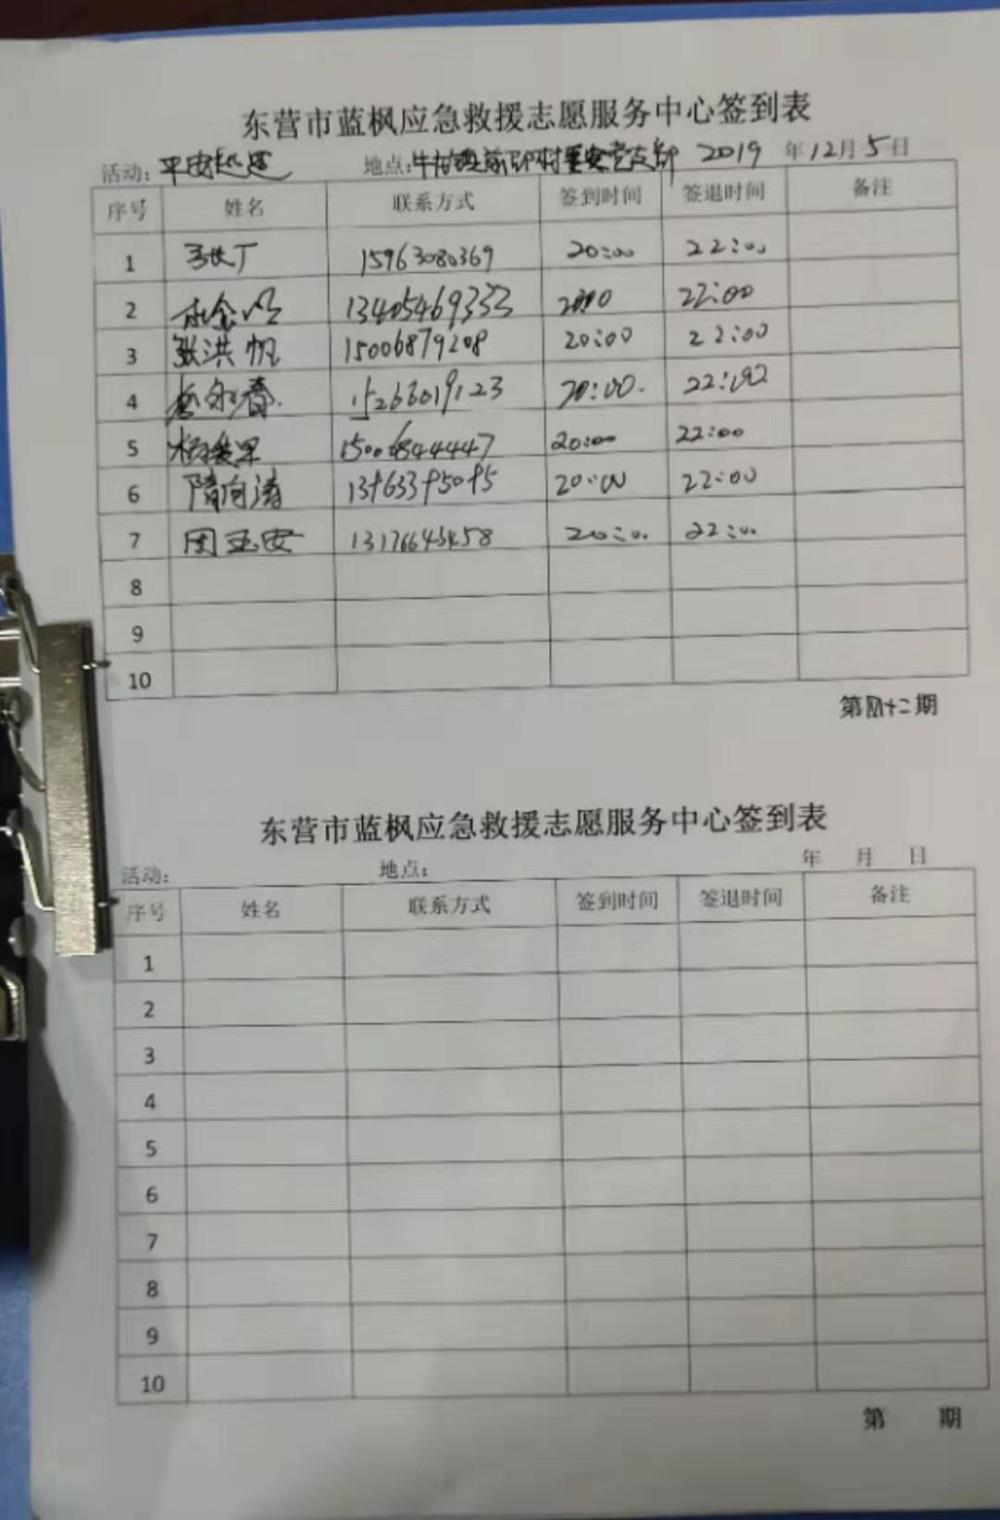 东营市蓝枫应急救援志愿服务中心签到表
活动：平安 地点：牛 村 党支部 2019 年 12 月 5 日
序号 姓名 联系方式 签到时间 签退时间 备注
1 15963080369 20:00 22:00
2 13405469333 22:00
3 张洪帆 15006879208 20:00 22:00
4 春 15266019123 20:00 22:00
5 15006844447 20:00 22:00
6 隋向涛 20:00 22:00
7 周玉安 20:00 22:00
8
9
10
第四十二期
东营市蓝枫应急救援志愿服务中心签到表
活动： 地点： 年 月 日
序号 姓名 联系方式 签到时间 签退时间 备注
1
2
3
4
5
6
7
8
9
10
第 期